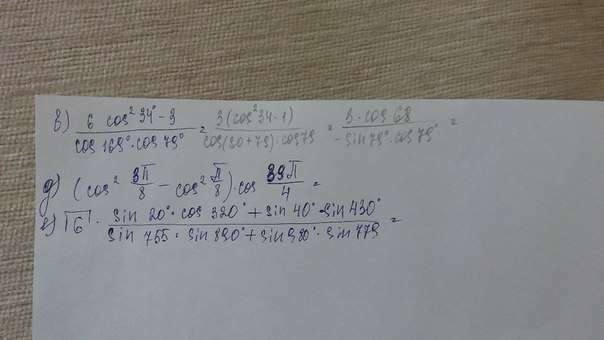 в) (6 cos² 34° - 3)/(cos 169° · cos 79°) = 3(cos² 34 - 1)/(cos(90 + 79) · cos 79) = (3 · cos 68)/(- sin 79° · cos 79°) =
д) (cos² 3π/8 - cos² π/8) · cos 39π/4 =
е) √6 · (sin 20° · cos 320° + sin 40° · sin 430°)/(sin 755 · sin 890° + sin 980° · sin 779) =